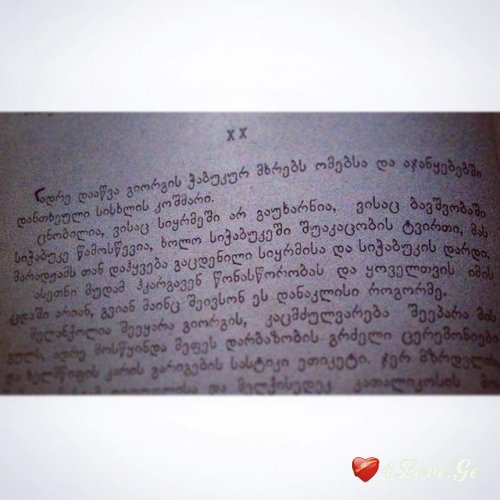 XX
ადრე დააწვა გიორგის ჭაბუკურ მხრებს ომებსა და აჯანყებებში
დანთხეული სისხლის კოშმარი.
ცნობილია, ვისაც სიყრმეში არ გაუხარნია, ვისაც ბავშვობაში
სიჭაბუკე წამოსწევია, ხოლო სიჭაბუკეში შუაკაცობის ტვირთი, მას
მარადჟამს თან დაჰყვება გაცდენილი სიყრმისა და სიჭაბუკის დარდი.
ასეთნი მუდამ ჰკარგავენ წონასწორობას და ყოველთვის იმის
ცდაში არიან, გვიან მაინც შეივსონ ეს დანაკლისი როგორმე.
მელანქოლია შეეყარა გიორგის, კაცმძულვარება შეეპარა მის
გულს, ადრე მოსწყინდა მეფეს დარბაზობის გრძელი ცერემონიები
და ხელმწიფის კარის გარიგების სასტიკი ეთიკეტი. ჯერ მზრდელის
და მელქისედეკ კათალიკოსის
4Love.Ge